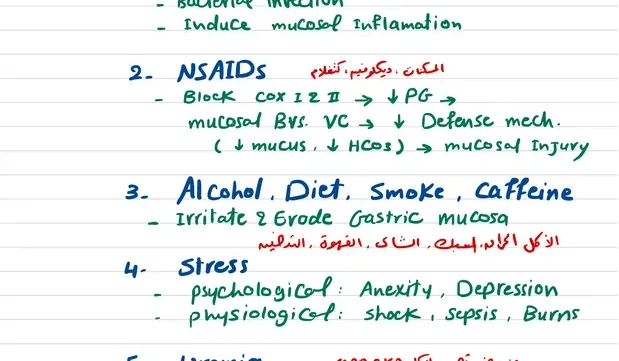 - Bacterial infection
- Induce mucosal Inflamation
2- NSAIDs المسكنات
- Block COX I & II → ↓ PG →
mucosal BVs. VC → ↓ Defense mech.
( ↓ mucus, ↓ HCO3 ) → mucosal Injury
3- Alcohol, Diet, Smoke, Caffeine
- Irritate & Erode Gastric mucosa
الأكل الشاى، القهوة، التدخين
4- Stress
- psychological: Anexity, Depression
- physiological: shock, sepsis, Burns